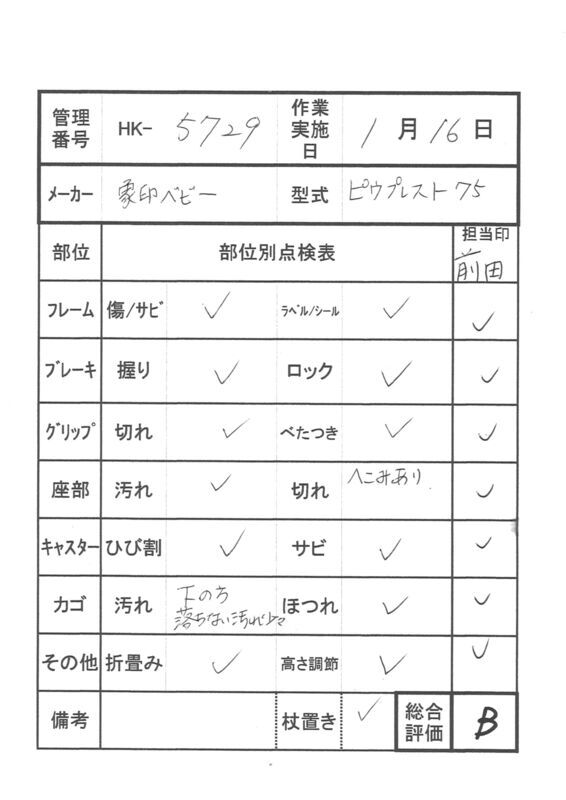 管理番号 HK- 5729 作業実施日 1月16日
メーカー 象印ベビー 型式 ピウプレスト75
部位 部位別点検表 担当印 前田
フレーム 傷/サビ ✓ ラベル/シール ✓ ✓
ブレーキ 握り ✓ ロック ✓ ✓
グリップ 切れ ✓ べたつき ✓ ✓
座部 汚れ ✓ 切れ へこみあり ✓
キャスター ひび割 ✓ サビ ✓ ✓
カゴ 汚れ 下のち
落ちない汚れ少々 ほつれ ✓ ✓
その他 折畳み ✓ 高さ調節 ✓ ✓
備考 杖置き ✓ 総合評価 B